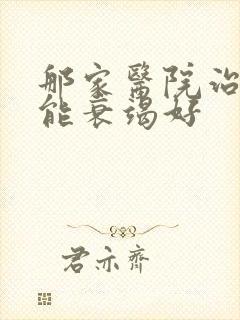 那家醫院治
能衰竭好
君亦齊